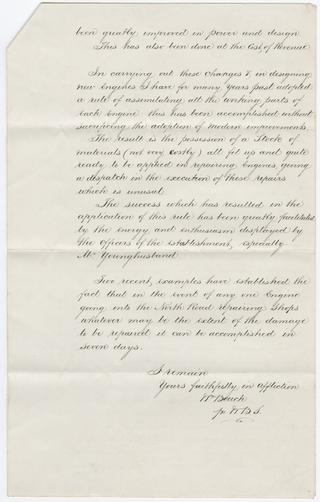 been greatly improved in power and design.
This has also been done at the Cost of Revenue
In carrying out these changes & in designing
new Engines I have for many Years past adopted
a rule of assimilating all the working parts of
each Engine this has been accomplished without
sacrificing the adoption of modern improvements.
The result is the possession of a Stock of
materials (not very costly) all fit up and quite
ready to be applied in repairing Engines, giving
a dispatch in the execution of these repairs
which is unusual
The success which has resulted in the
application of this rule has been greatly facilitated
by the energy and enthusiasm displayed by
the Officers of the establishment, especially
Mr Younghusband
Two recent, examples have established the
fact that in the event of any one Engine
going into the North Road repairing Shops
whatever may be the extent of the damage
to be repaired it can be accomplished in
seven days.
I remain
Yours faithfully in affliction
Wm Bouch